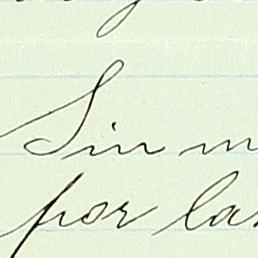 Sin m
por la